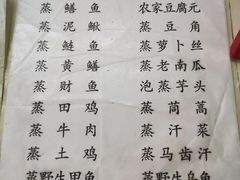 蒸鳝鱼 农家豆腐元
蒸泥鳅 蒸豆角
蒸鲢鱼 蒸萝卜丝
蒸黄鳝 蒸老南瓜
蒸财鱼 泡蒸芋头
蒸田鸡 蒸茼蒿
蒸牛肉 蒸汗菜
蒸土鸡 蒸马齿汗
蒸野生甲鱼 蒸野生乌鱼